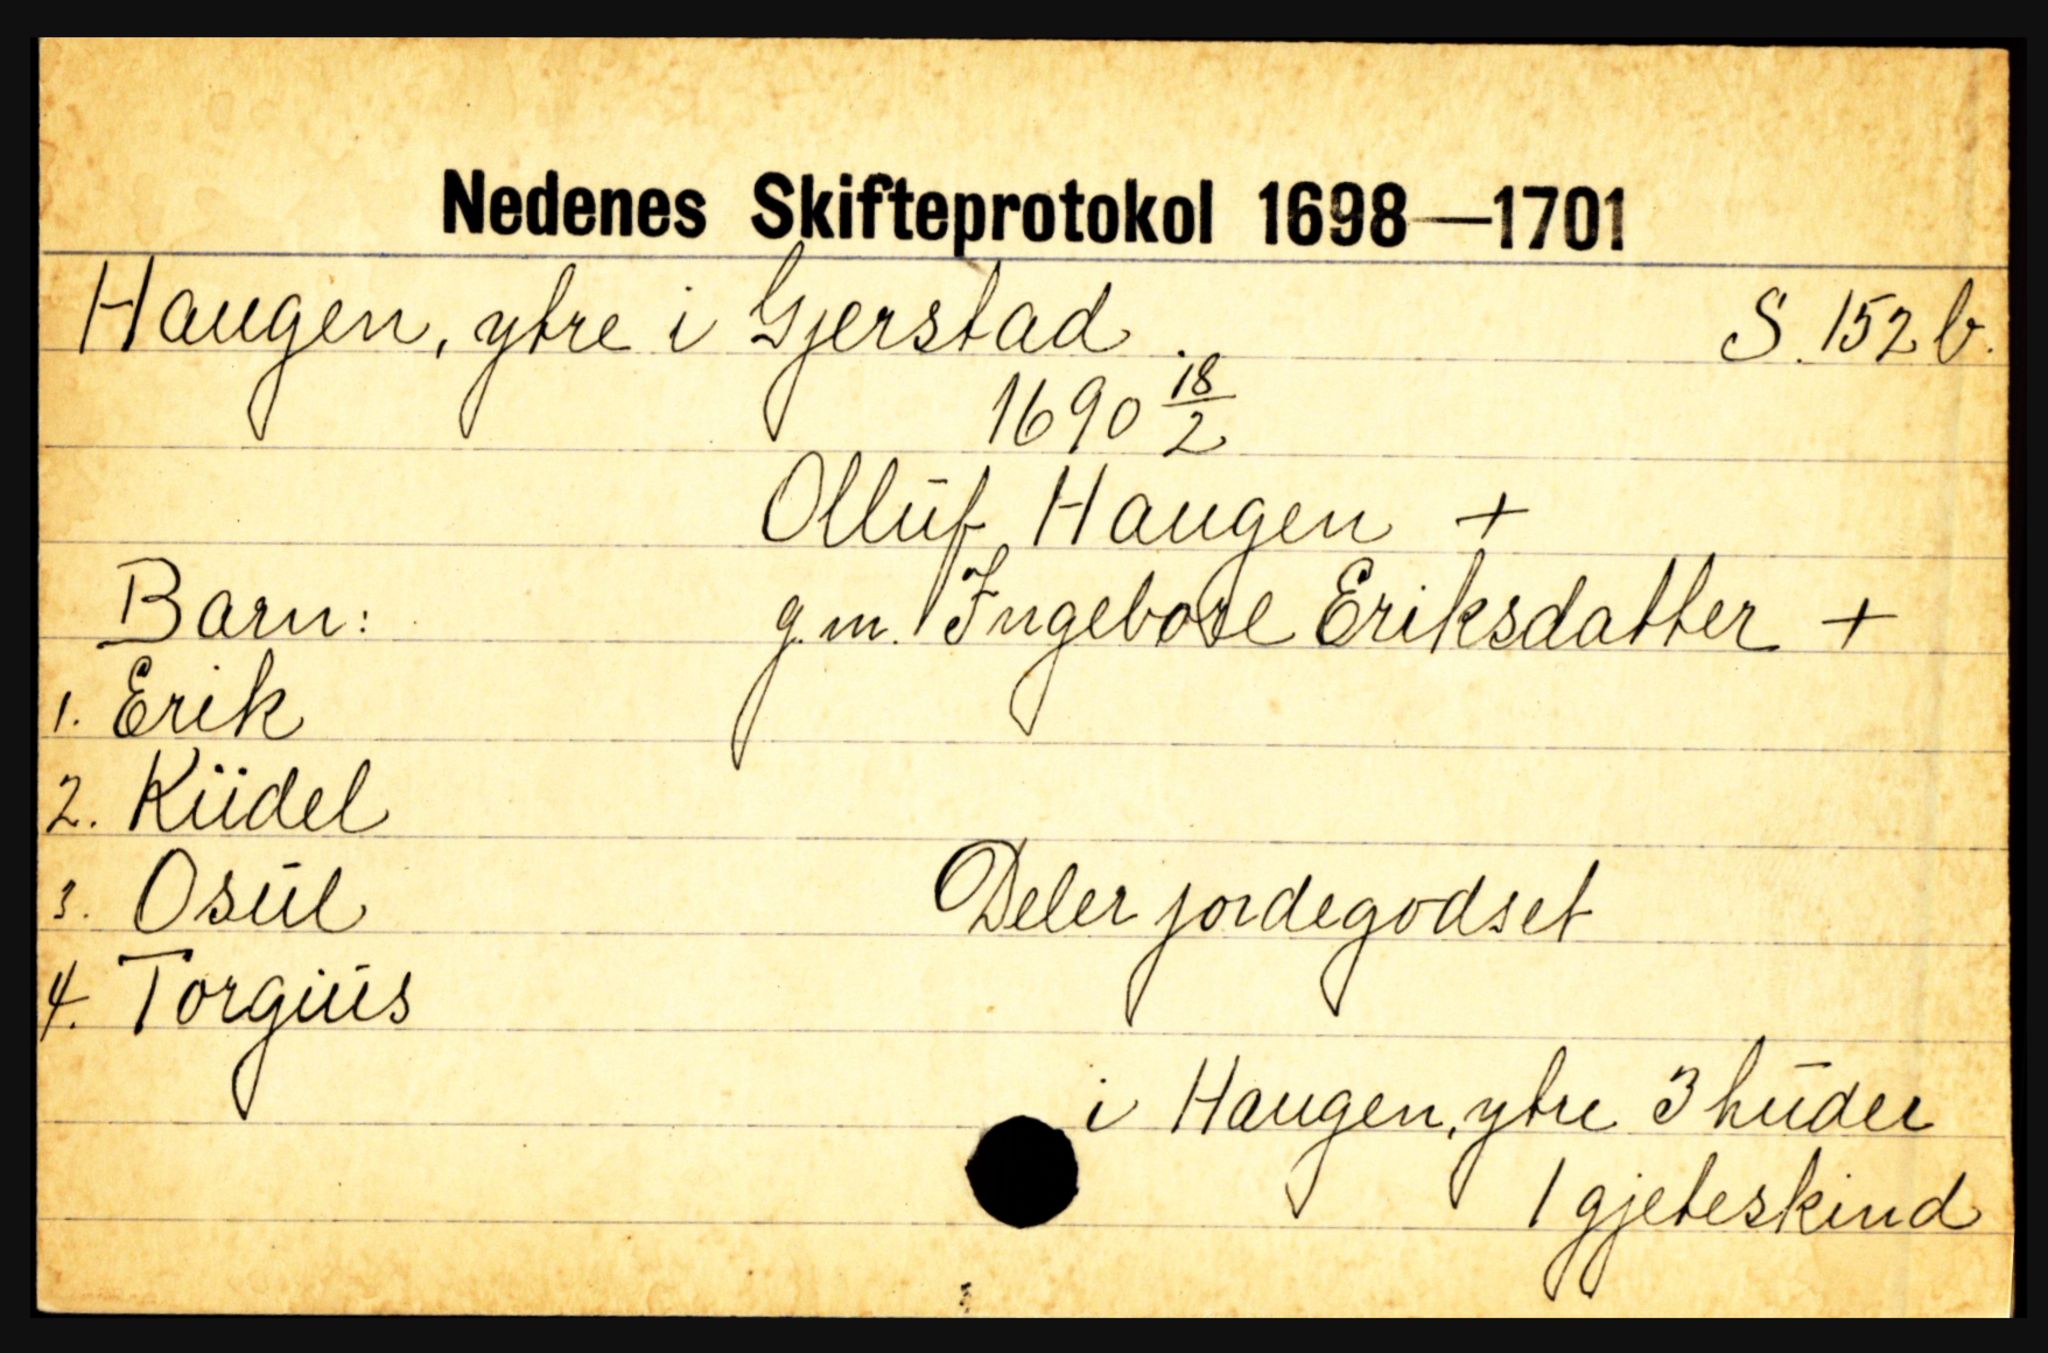 Nedenes Skifteprotokol 1698—1701
Haugen, ytre i Gjerstad. S. 152 b.
1690 18/2
Olluf Haugen +
Barn: g.m. Ingebore Eriksdatter +
1. Erik
2. Küdel
3. Osūl Deler jordegodset
4. Torgiüs
i Haugen, ytre 3 hūder
1 gjeteskind